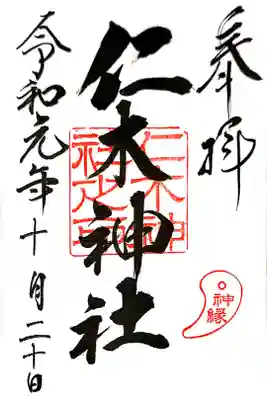 奉拝
仁木神社
仁木神社之印
神縁
令和元年十月二十日